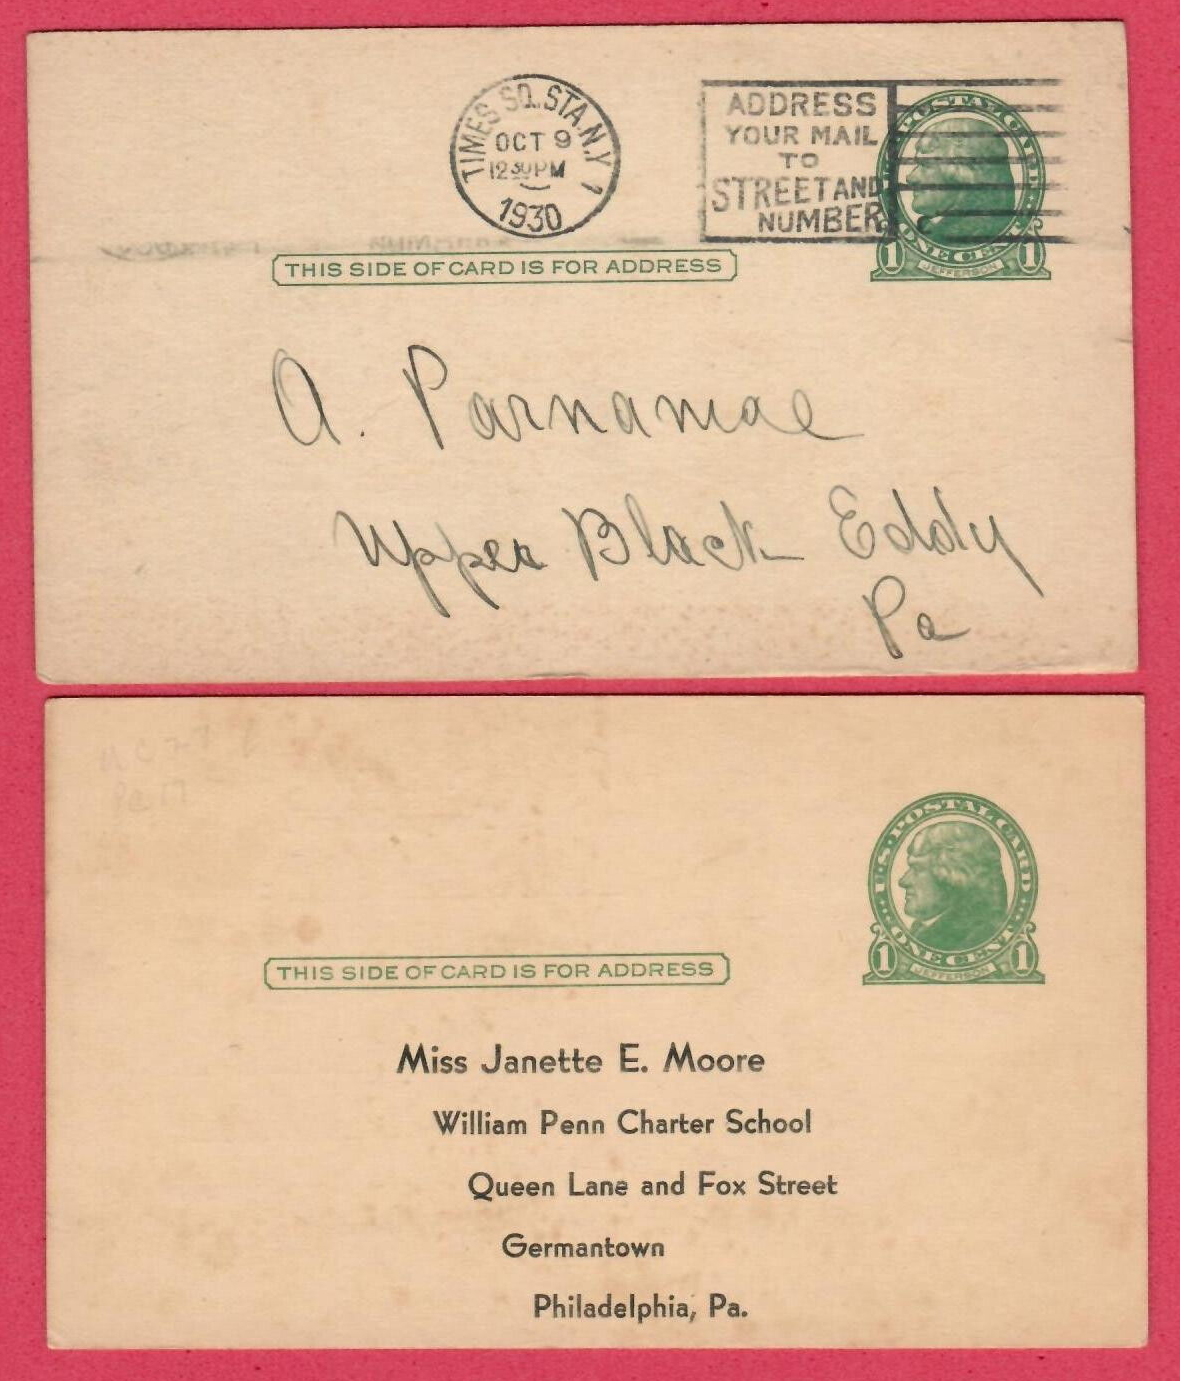 TIMES SQ. STA. N.Y. 1
OCT 9
12 30 PM
1930
ADDRESS
YOUR MAIL
TO
STREET AND
NUMBER
POSTAL CARD
ONE CENT
1 JEFFERSON 1
THIS SIDE OF CARD IS FOR ADDRESS
A. Parnamae
Upper Black Eddy
Pa
U.S. POSTAL CARD
ONE CENT
1 JEFFERSON 1
THIS SIDE OF CARD IS FOR ADDRESS
Miss Janette E. Moore
William Penn Charter School
Queen Lane and Fox Street
Germantown
Philadelphia, Pa.